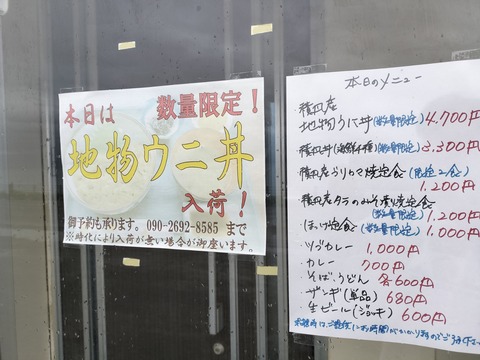 本日は 数量限定！
地物ウニ丼
入荷！
御予約も承ります。 090-2692-8585 まで
※時化により入荷が無い場合が御座います。
本日のメニュー
・積丹産
地物うに丼(数量限定) 4.700円
・積丹丼(海鮮6種)(数量限定) 3.300円
・積丹産ぶりカマ焼定食(限定2食)
1.200円
・積丹産タラのみそ漬り焼定食
(数量限定) 1.200円
・ほっけ定食(数量限定) 1.000円
・ツブカレー 1,000円
・カレー 700円
・そば、うどん 各600円
・ザンギ(単品) 680円
・生ビール(ジョッキ) 600円